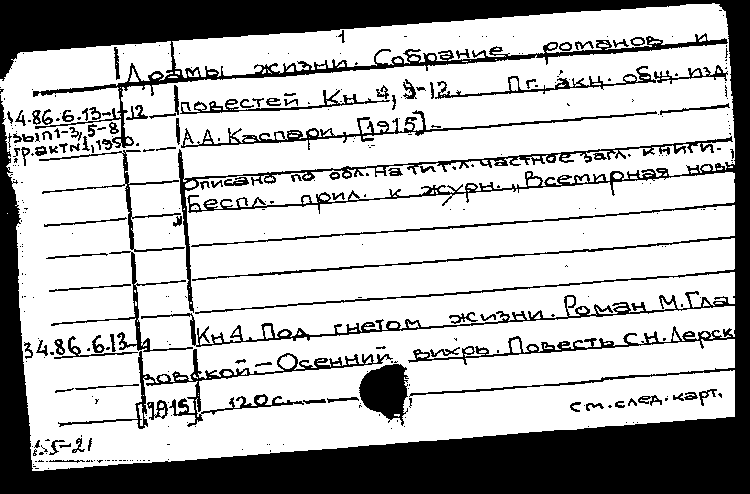 1
Драмы жизни. Собрание романов и
34.86.6.13-1-12 повестей. Кн. 4, 9-12. Пг., акц. общ. изд
вып 1-3, 5-8
гр. акт №1, 1950. А.А. Каспари, [1915].
Описано по обл. На тит. л. частное загл. книги.
Беспл. прил. к журн. „Всемирная новь
34.86.6.13-4 Кн 4. Под гнетом жизни. Роман М. Гла-
зовской. – Осенний вихрь. Повесть С.Н. Лерск
[1915] 120 с.
см. след. карт.
155-21